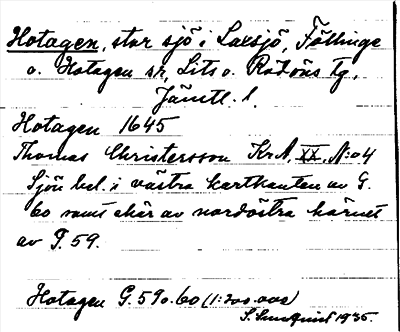 Hotagen, stor sjö i Laxsjö, Föllinge
o. Hotagen sn, Lits o. Rödöns tg,
Jämtl. l.
Hotagen 1645
Thomas Christersson KrA, XX, N:o 4
Sjön bel. i västra kartkanten av G.
60 samt skär av nordöstra hörnet
av F. 59.
Hotagen G. 59 o. 60 (1:200.000)
S. Sundquist 1935.